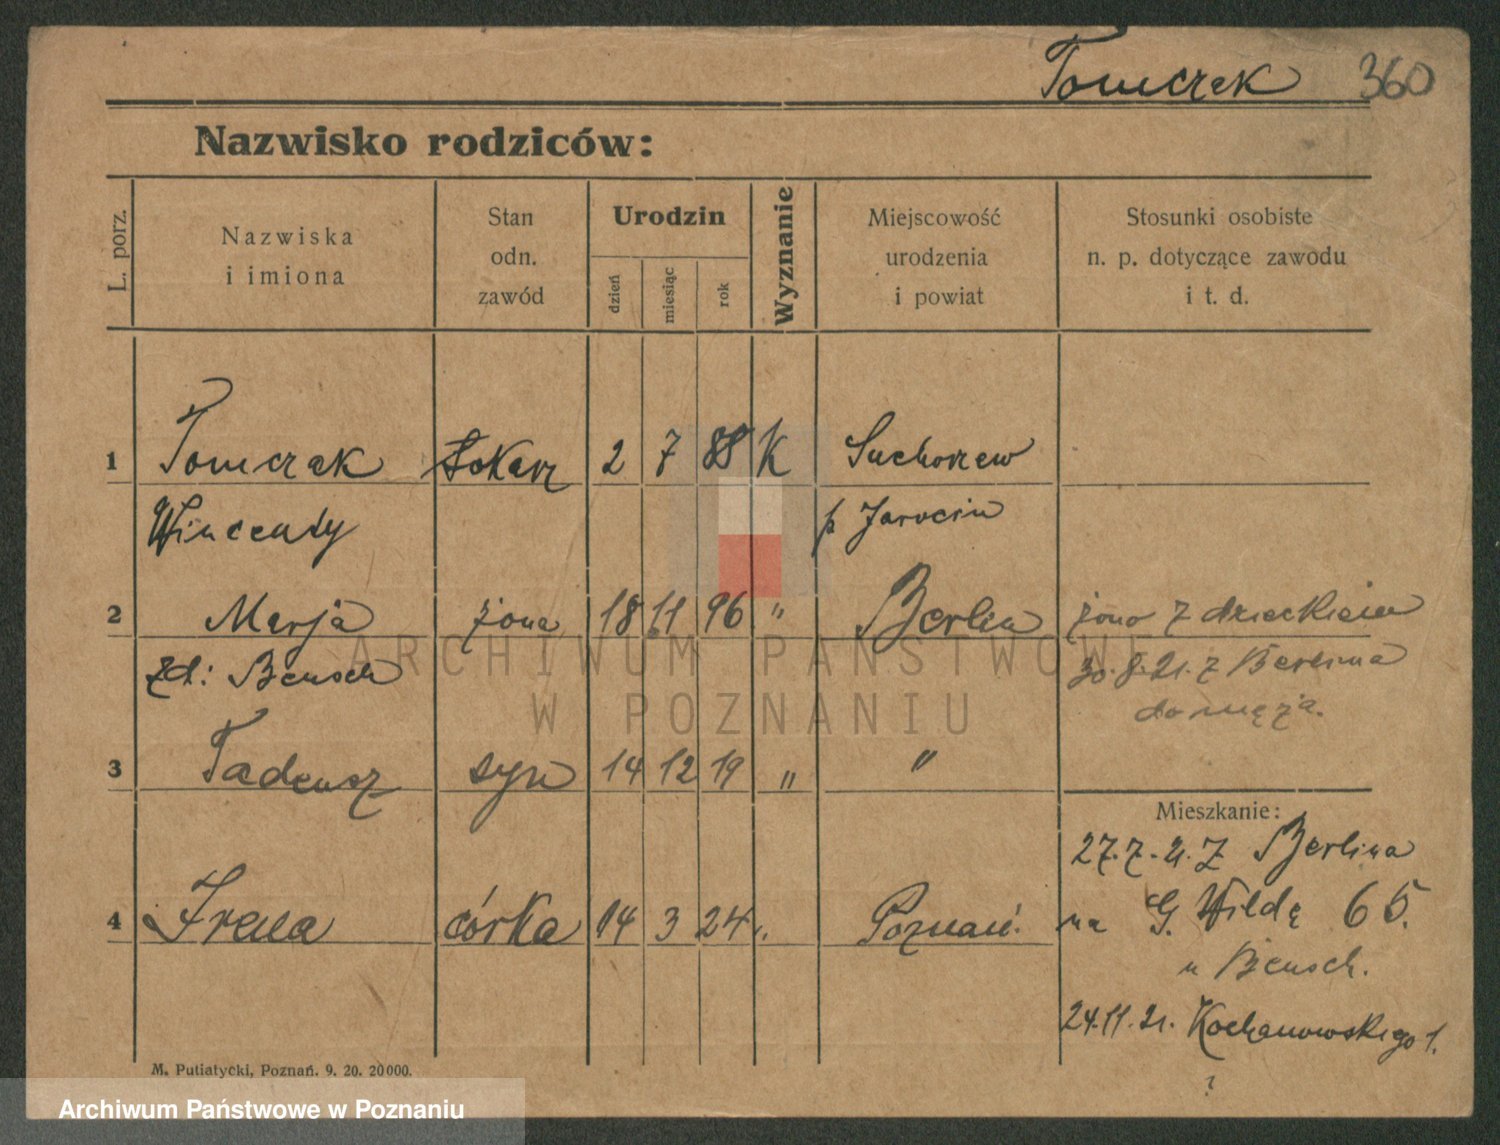 Tomczak 360
Nazwisko rodziców:
L. porz.
Nazwiska
i imiona
Stan
odn.
zawód
Urodzin
dzień
miesiąc
rok
Wyznanie
Miejscowość
urodzenia
i powiat
Stosunki osobiste
n. p. dotyczące zawodu
i t. d.
1 Tomczak tokarz 2 7 88 K Suchorzew
Wincenty p Jarocin
2 Marja żona 18 11 96 " Berlin żona z dzieckiem
zd: Bensch 30.8.21. z Berlina
do męża.
3 Tadeusz syn 14 12 19 " "
Mieszkanie:
27.7.21. z Berlina
4 Irena córka 14 3 24 Poznań. na G. Wildę 65.
u Bensch.
24.11.21. Kochanowskiego 1.
?
M. Putiatycki, Poznań. 9. 20. 20000.
ARCHIWUM PAŃSTWOWE
W POZNANIU
Archiwum Państwowe w Poznaniu